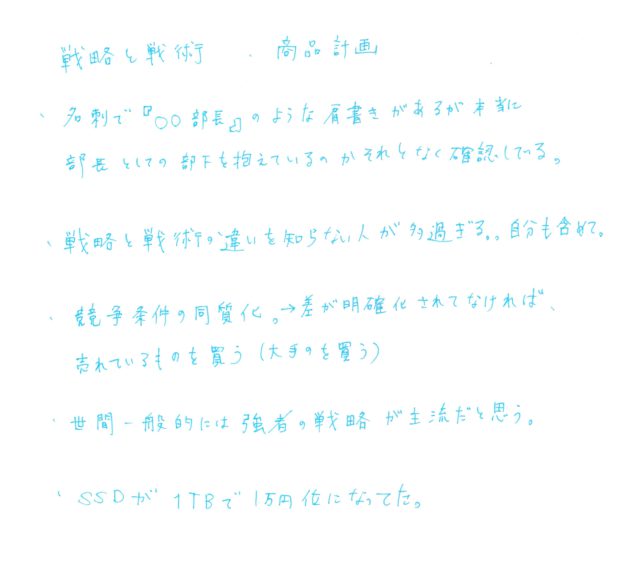 戦略と戦術　．商品計画
・名刺で『○○部長』のような肩書きがあるが本当に
部長としての部下を抱えているのかそれとなく確認している。
・戦略と戦術の違いを知らない人が多過ぎる。。自分も含めて。
・競争条件の同質化。→差が明確化されてなければ、
売れているものを買う（大手のを買う）
・世間一般的には強者の戦略が主流だと思う。
・SSDが1TBで1万円位になってた。